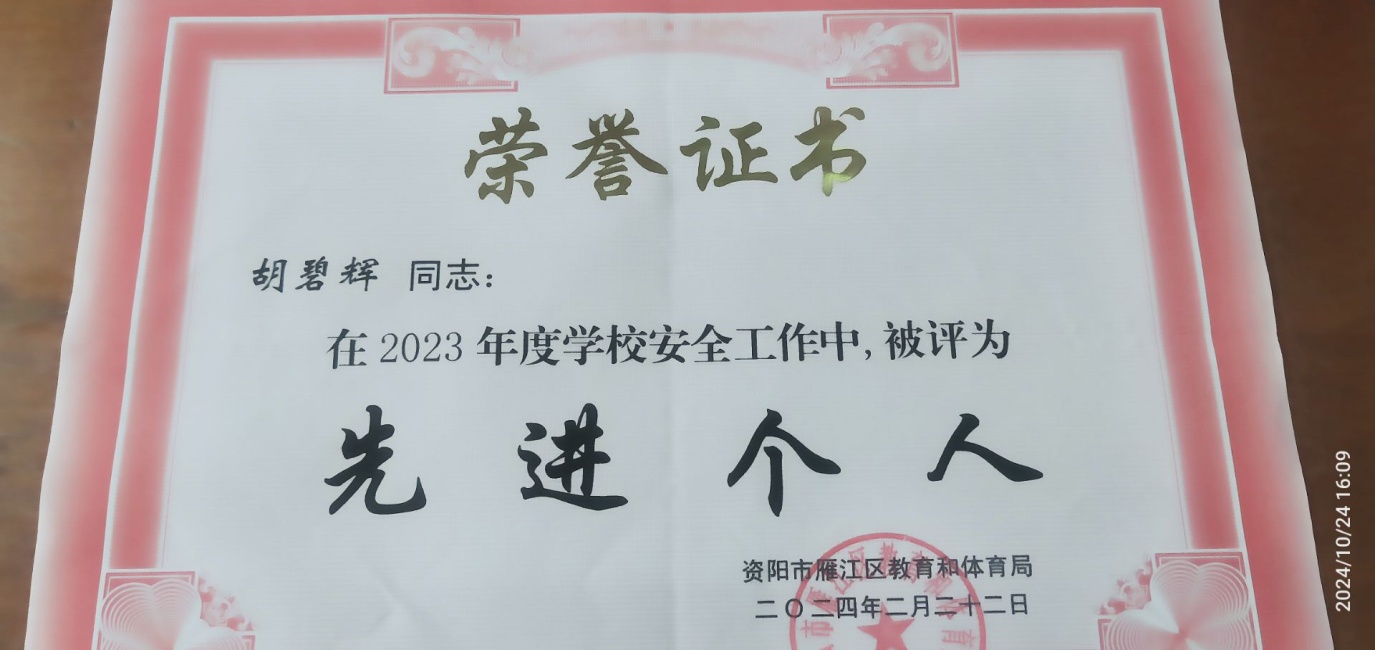 荣誉证书
胡碧辉 同志：
在2023年度学校安全工作中,被评为
先进个人
资阳市雁江区教育和体育局
二〇二四年二月二十二日
2024/10/24 16:09